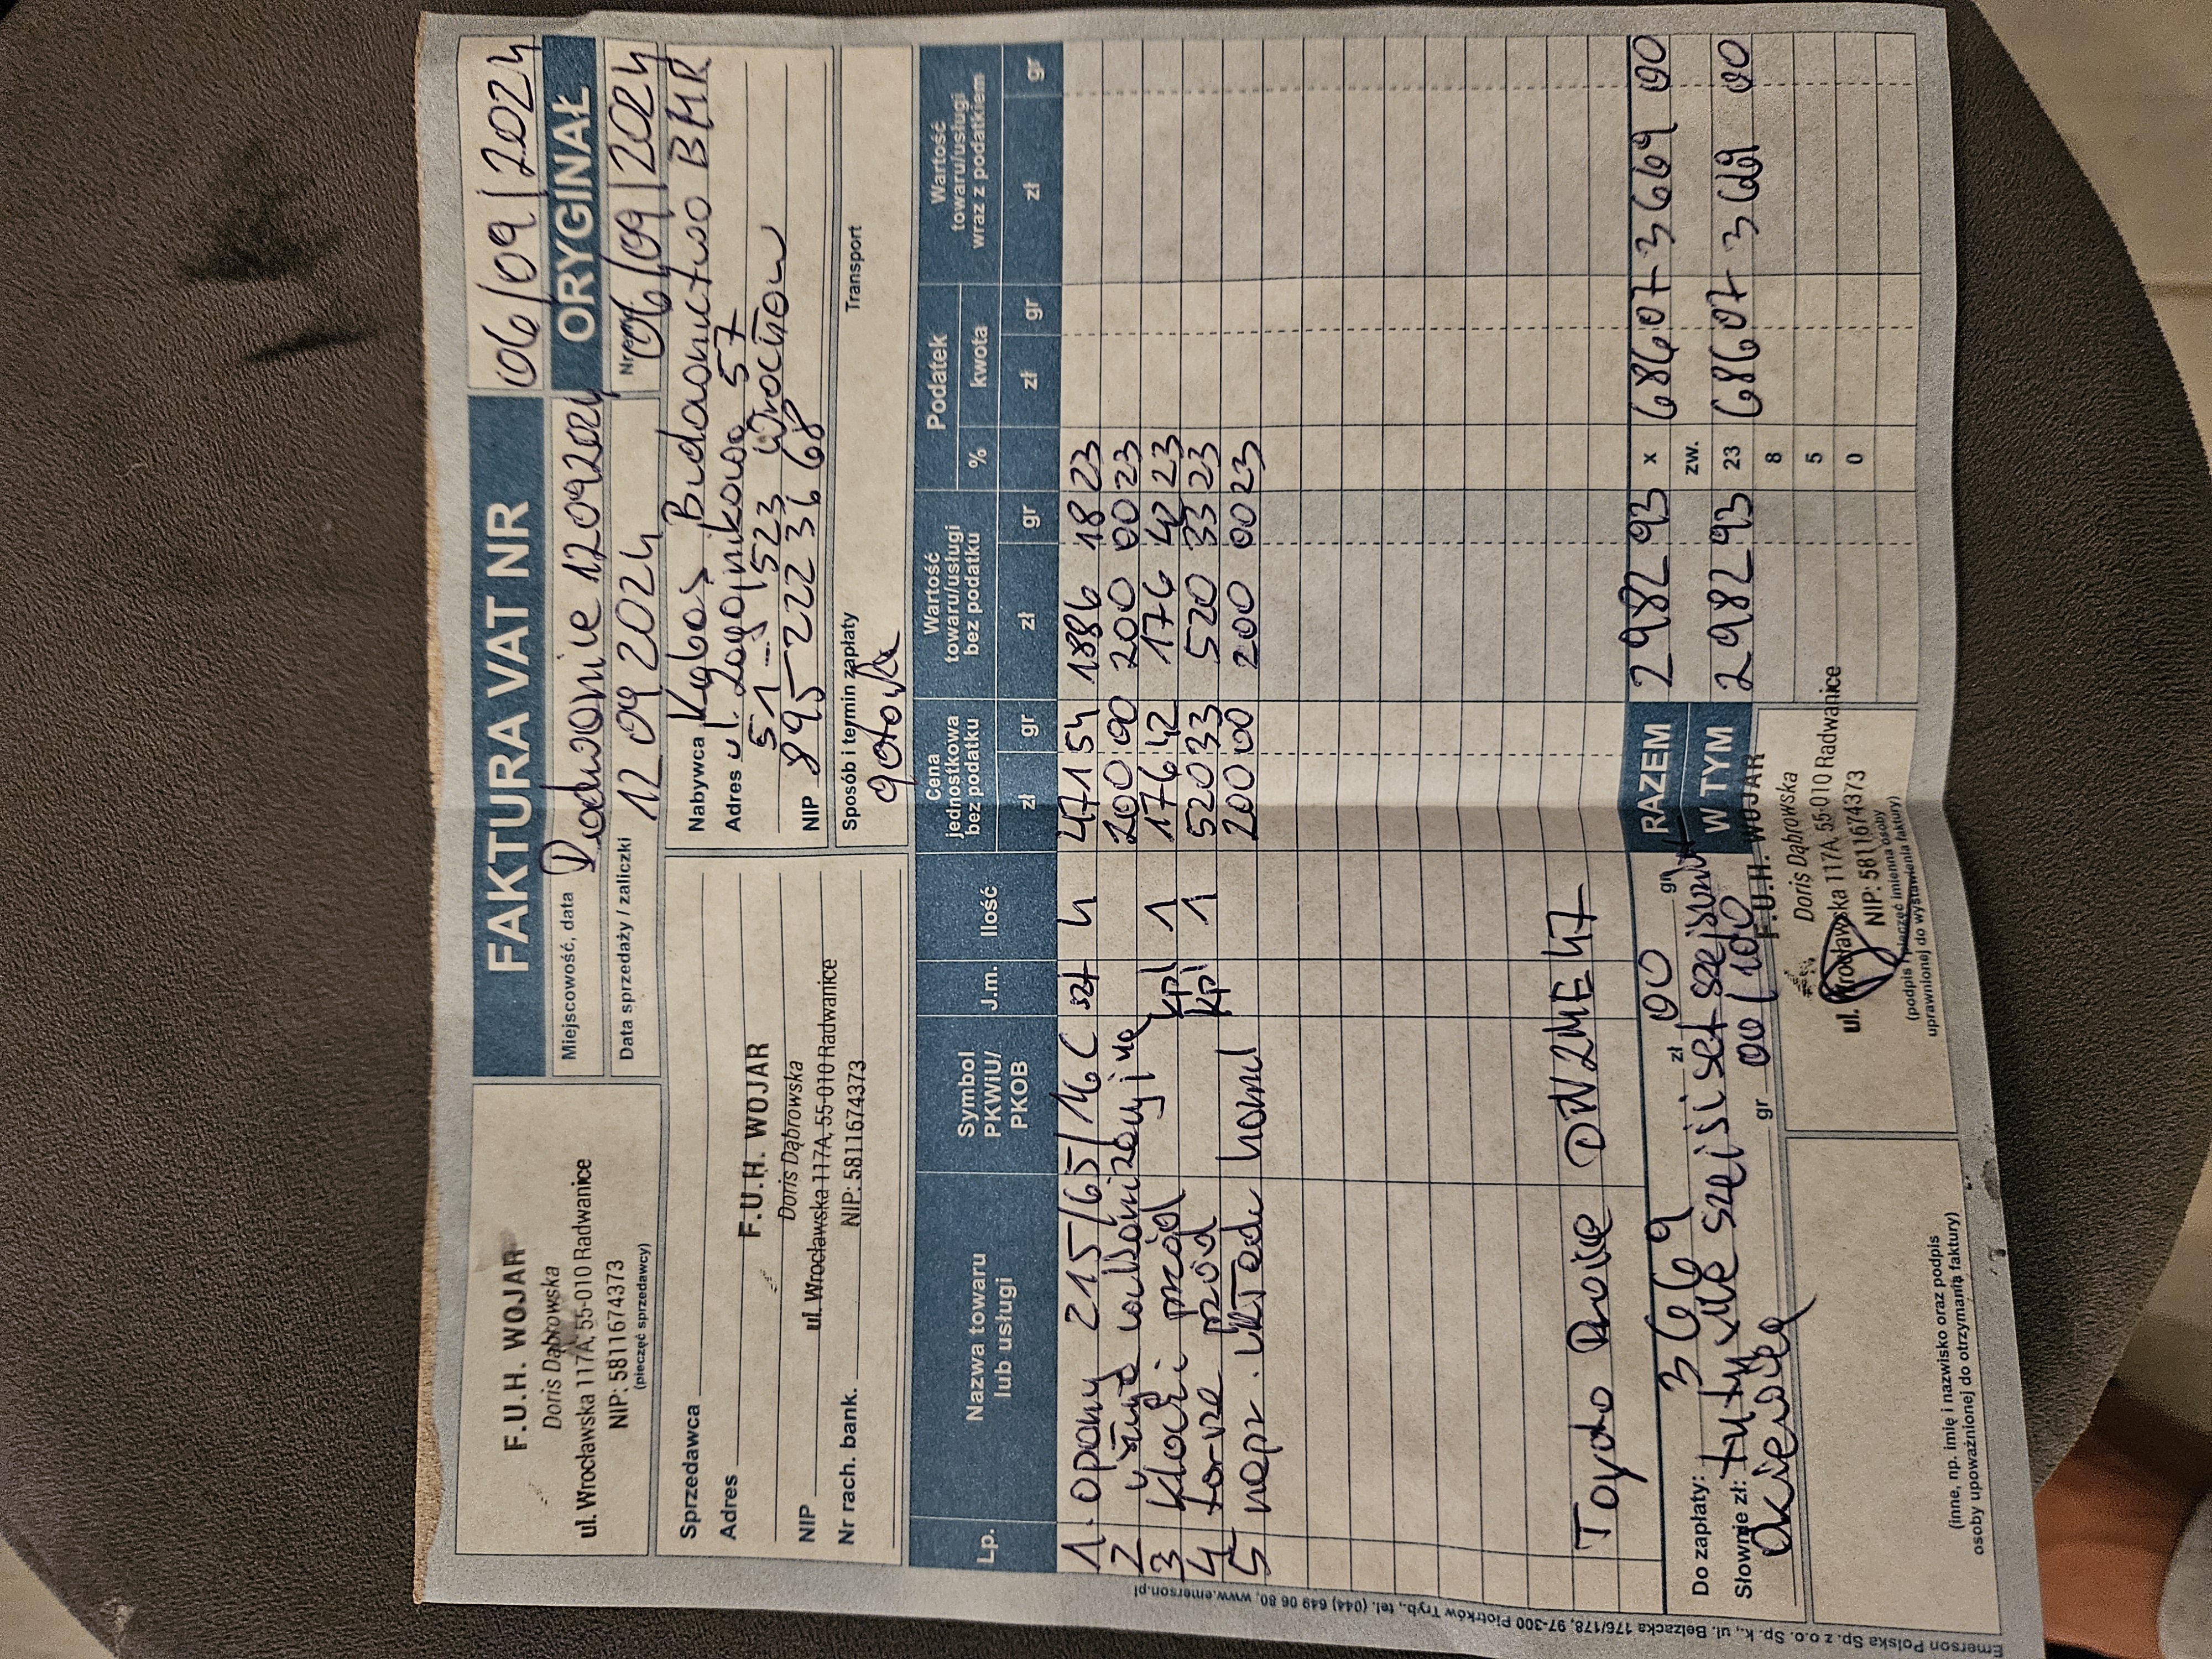 FAKTURA VAT NR 06/09/2024
F.U.H. WOJAR
Doris Dąbrowska
ul. Wrocławska 117A, 55-010 Radwanice
NIP: 5811674373
(pieczęć sprzedawcy)
Miejscowość, data Radwanice 12092024
ORYGINAŁ
Data sprzedaży / zaliczki 12 09 2024
06/09/2024
Sprzedawca
Adres
F.U.H. WOJAR
Doris Dąbrowska
ul. Wrocławska 117A, 55-010 Radwanice
NIP
NIP: 5811674373
Nr rach. bank.
Nabywca Budownictwo BMR
Adres ul. 57
523 Wrocław
NIP 895 222 36 68
Sposób i termin zapłaty
gotówka
Transport
Lp. Nazwa towaru lub usługi Symbol PKWiU/ PKOB J.m. Ilość Cena jednostkowa bez podatku Wartość towaru/usługi bez podatku Podatek Wartość towaru/usługi wraz z podatkiem
zł gr zł gr % kwota zł gr zł gr
1. opony 215/65/16C szt 4 471 54 1886 18 23
2 200 00 200 00 23
3 klocki przód kpl 1 176 42 176 42 23
4 tarcze przód kpl 1 520 33 520 33 23
5 napr. układu hamul 200 00 200 00 23
Toyota DW2ME47
RAZEM 2982 93 x 686 07 3669 00
zw.
W TYM 2982 93 23 686 07 3669 00
8
5
0
Do zapłaty: 3669 zł 00 gr
Słownie zł: trzy sześćset sześćdziesiąt
dziewięć gr 00/100
F.U.H. WOJAR
Doris Dąbrowska
ul. Wrocławska 117A, 55-010 Radwanice
NIP: 5811674373
(podpis i pieczęć imienna osoby
uprawnionej do wystawienia faktury)
(inne, np. imię i nazwisko oraz podpis
osoby upoważnionej do otrzymania faktury)
Emerson Polska Sp. z o.o. Sp. k., ul. Belzacka 176/178, 97-300 Piotrków Tryb., tel. (044) 649 06 80, www.emerson.pl